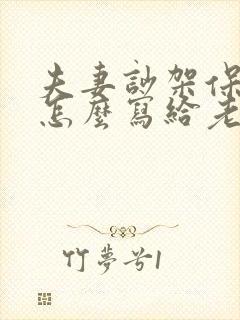 夫妻訬架保
怎麼寫給老
竹夢兮1